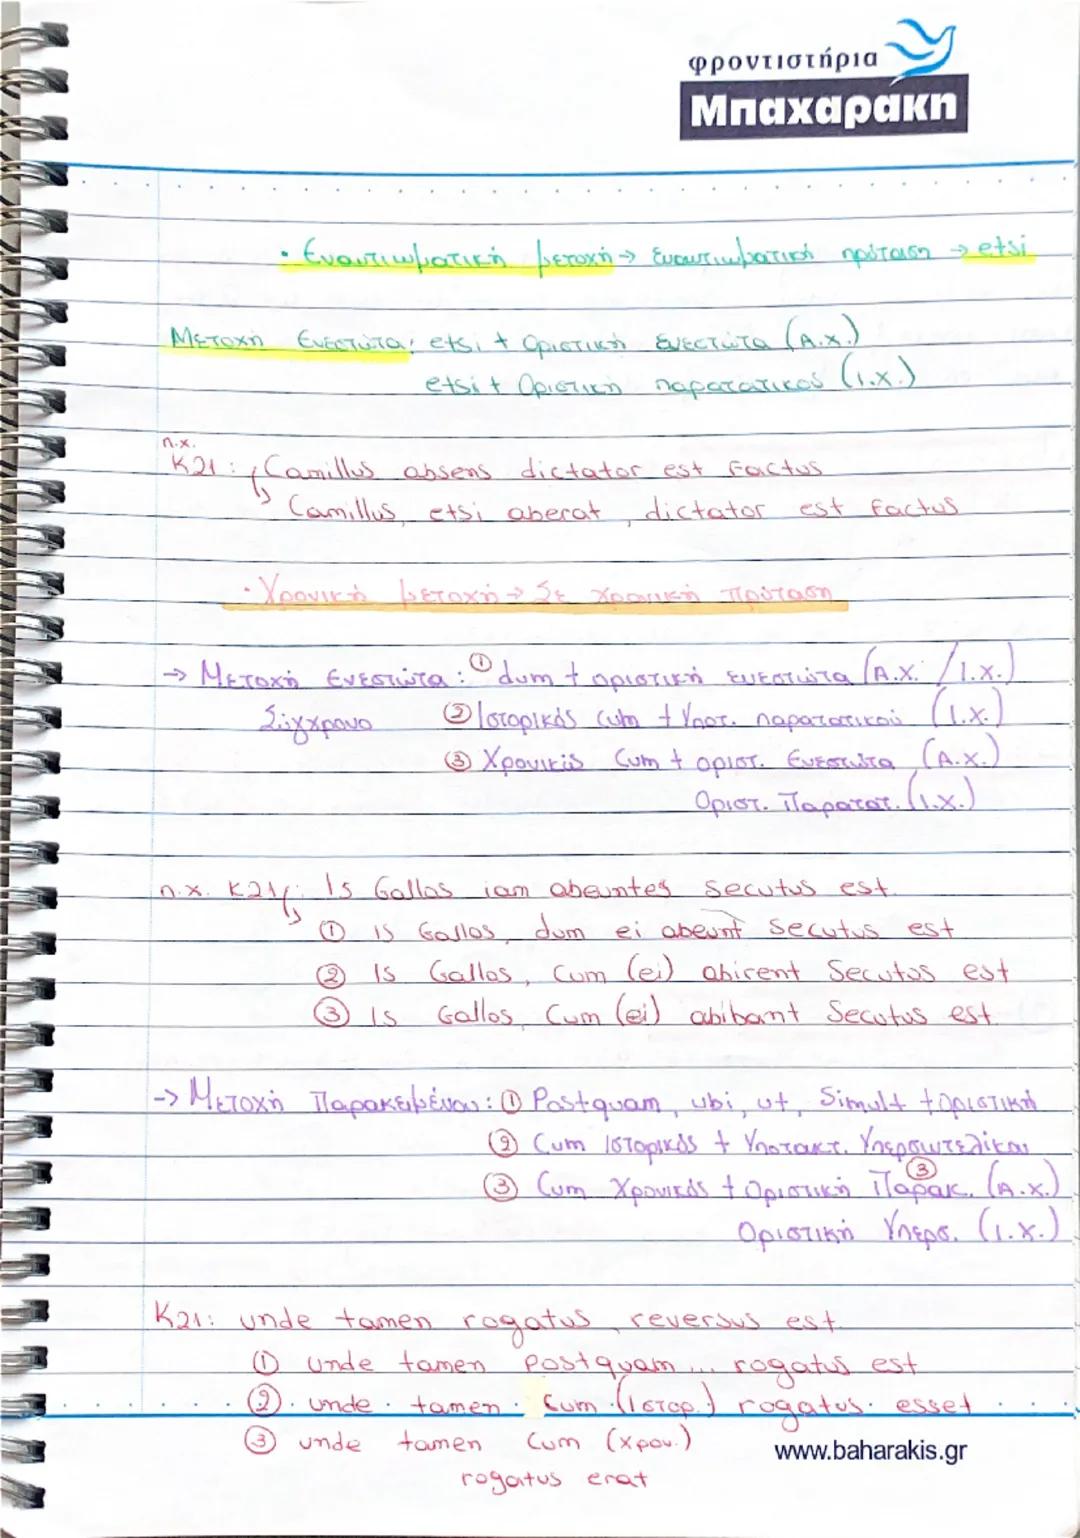 φροντιστήρια
Μπαχαράκη
• Εναντιωματική μετοχή → Εναντιωματική πρόταση → etsi
Μετοχή Ενεστώτα: etsi + Οριστική Ενεστώτα (Α.Χ.)
etsi + Οριστική παρατατικού (Ι.Χ.)
π.χ.
Κ21: Camillus absens dictator est factus
Camillus, etsi aberat, dictator est factus
• Χρονική μετοχή → Σε χρονική πρόταση
→ Μετοχή Ενεστώτα: ① dum + οριστική ενεστώτα (Α.Χ. / Ι.Χ.)
Σύγχρονο ② Ιστορικός cum + Υποτ. παρατατικού (Ι.Χ.)
③ Χρονικός Cum + οριστ. Ενεστώτα (Α.Χ.)
Οριστ. Παρατατ. (Ι.Χ.)
π.χ. Κ21: Is Gallos iam abeuntes secutus est
① is Gallos, dum ei abeunt secutus est
② Is Gallos, cum (ei) abirent secutus est
③ Is Gallos, cum (ei) abibant secutus est
-> Μετοχή Παρακειμένου: ① Postquam, ubi, ut, Simul + οριστική
② Cum Ιστορικός + Υποτακτ. Υπερσυντελίκου
③
③ Cum Χρονικός + Οριστική Παρακ. (Α.Χ.)
Οριστική Υπερσ. (Ι.Χ.)
Κ21: unde tamen rogatus, reversus est
① unde tamen postquam ... rogatus est
② unde tamen cum (Ιστορ.) rogatus esset
③ unde tamen cum (χρον.)
www.baharakis.gr
rogatus erat